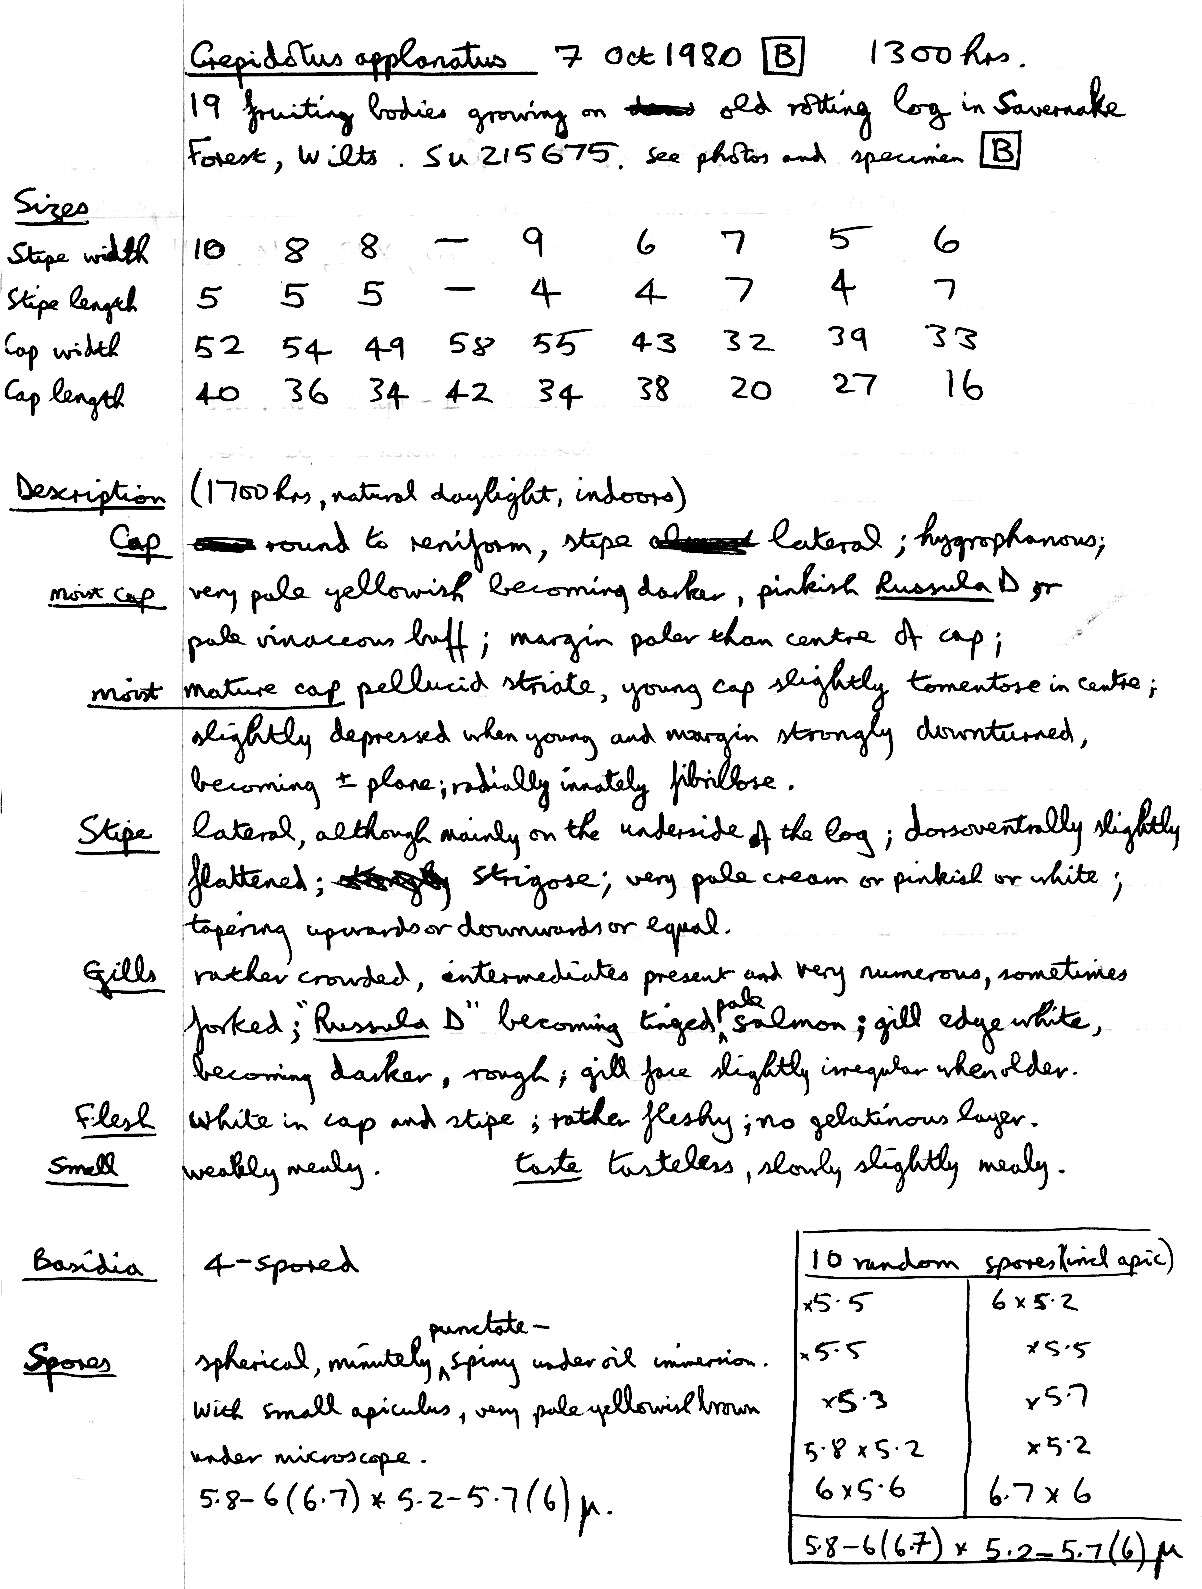 Crepidotus applanatus 7 Oct 1980 B 1300 hrs.
19 fruiting bodies growing on old rotting log in Savernake
Forest, Wilts. SU 215675. see photos and specimen B
Sizes
Stipe width 10 8 8 — 9 6 7 5 6
Stipe length 5 5 5 — 4 4 7 4 7
Cap width 52 54 49 58 55 43 32 39 33
Cap length 40 36 34 42 34 38 20 27 16
Description (1700 hrs, natural daylight, indoors)
Cap round to reniform, stipe lateral; hygrophanous;
moist cap very pale yellowish becoming darker, pinkish Russula D or
pale vinaceous buff; margin paler than centre of cap;
moist mature cap pellucid striate, young cap slightly tomentose in centre;
slightly depressed when young and margin strongly downturned,
becoming ± plane; radially innately fibrillose.
Stipe lateral, although mainly on the underside of the log; dorsoventrally slightly
flattened; strigose; very pale cream or pinkish or white;
tapering upwards or downwards or equal.
Gills rather crowded, intermediates present and very numerous, sometimes
forked; "Russula D" becoming tinged pale salmon; gill edge white,
becoming darker, rough; gill face slightly irregular when older.
Flesh white in cap and stipe; rather fleshy; no gelatinous layer.
Smell weakly mealy. taste tasteless, slowly slightly mealy.
Basidia 4-spored
Spores spherical, minutely punctate-spiny under oil immersion.
With small apiculus, very pale yellowish brown
under microscope.
5.8–6(6.7) × 5.2–5.7(6) µ.
10 random spores (incl apic)
×5.5 6×5.2
×5.5 ×5.5
×5.3 ×5.7
5.8×5.2 ×5.2
6×5.6 6.7×6
5.8–6(6.7) × 5.2–5.7(6) µ